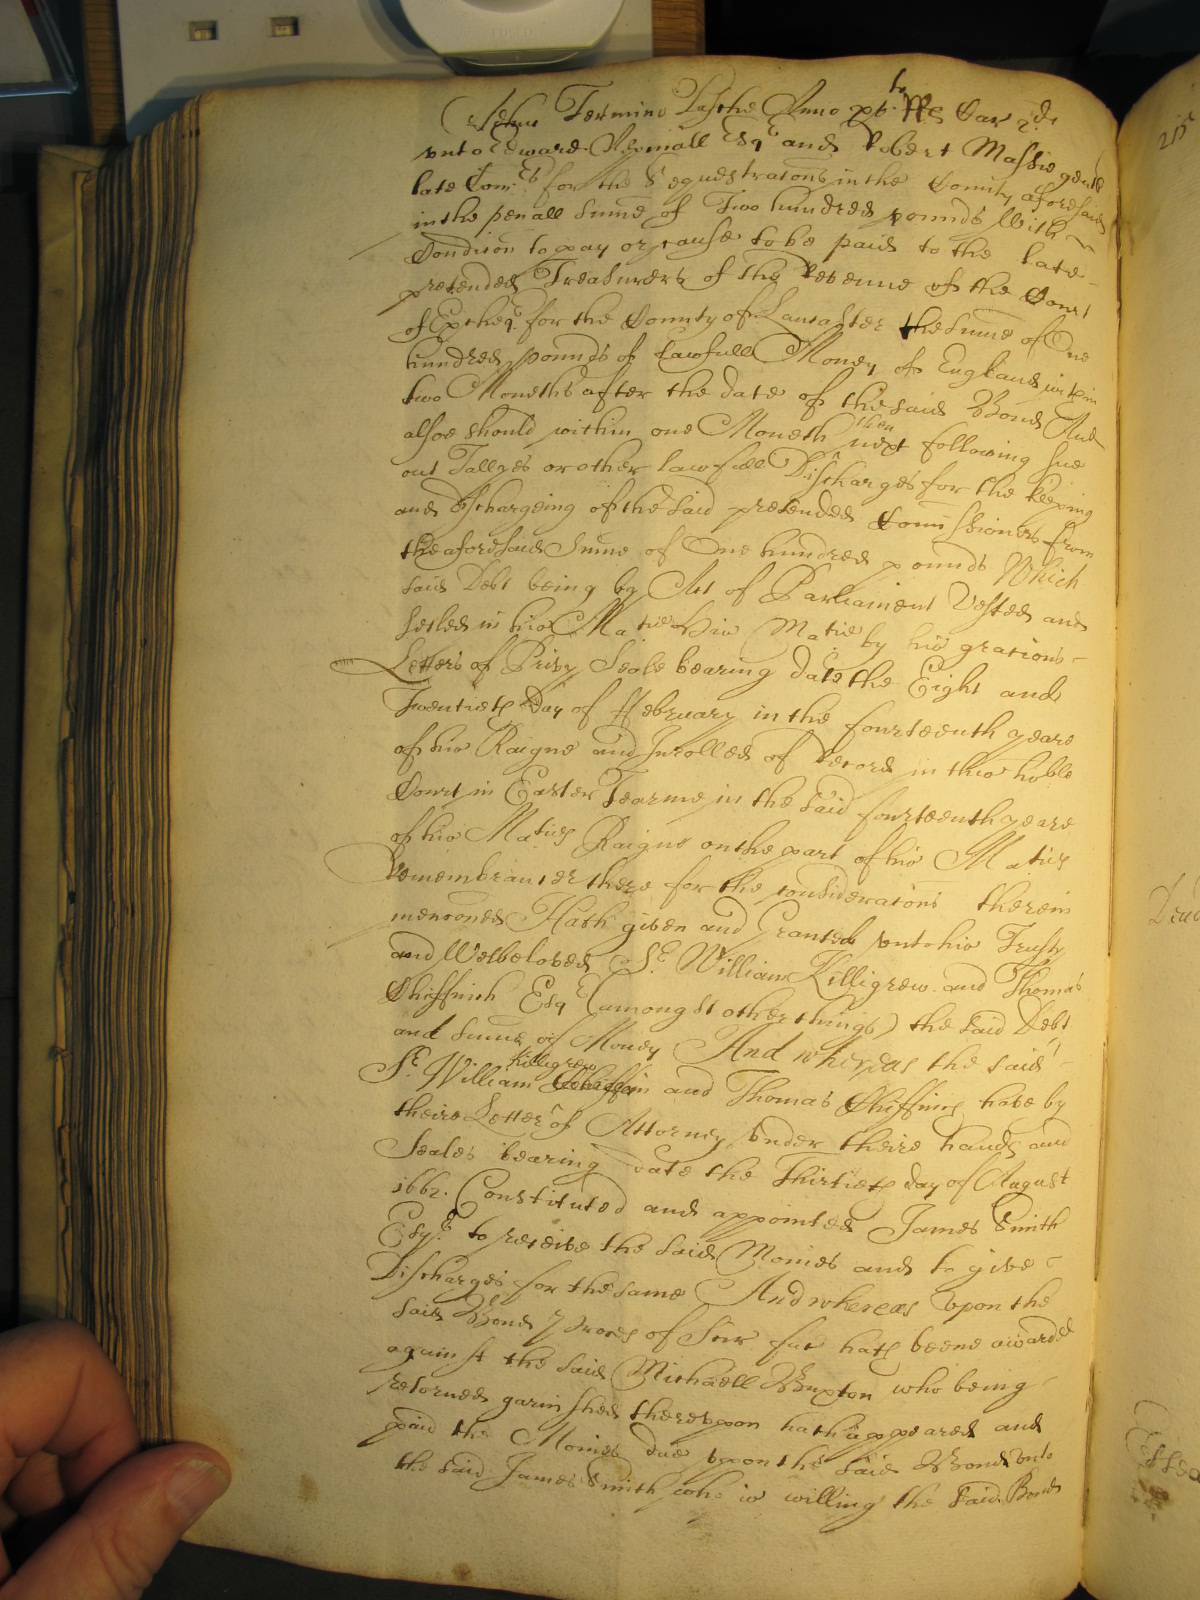 Termino Pasche Anno xvto Rs Car 2di
vnto Edward Esqr and Robert Massie gent
late Comrs for the Sequestracons in the County aforesaid
in the penall sume of Two hundred pounds With
Condicon to pay or cause to be paid to the late
pretended Treasurers of the Revenue of the Court
of Excheqr for the County of Lancaster the sume of One
hundred pounds of lawfull Money of England within
two Moneths after the date of the said Bond And
alsoe should within one Moneth then next following sue
out Tallyes or other lawfull Discharges for the keeping
and dischargeing of the said pretended Comissioners from
the aforesaid Sume of One hundred pounds Which
said Debt being by Act of Parliament Vested and
setled in his Matie His Matie by his gracious
Letters of Privy Seale bearing date the Eight and
Twentieth Day of ffebruary in the fourteenth yeare
of his Raigne and Inrolled of Record in this hoble
Court in Easter Tearme in the said fourteenth yeare
of his Maties Raigne on the part of his Maties
Remembrancer there for the consideracons therein
menconed Hath given and Granted vnto his Trusty
and Welbeloved Sr William Killigrew and Thomas
Chiffinch Esqr (amongst other things) the said Debt
and sume of Money And whereas the said
Sr William Killigrew and Thomas Chiffinch have by
theire Letter of Attorney vnder theire hands and
Seales bearing date the Thirtieth day of August
1662. Constituted and appointed James Smith
Esqr. to receive the said Monies and to give
Discharges for the same And whereas vpon the
said Bond Proces of Scir fac hath beene awarded
against the said Michaell Buxton who being
retorned garnished therevpon hath appeared and
paid the Monies due vpon the said Bond vnto
the said James Smith who is willing the said Bond
215
Essex